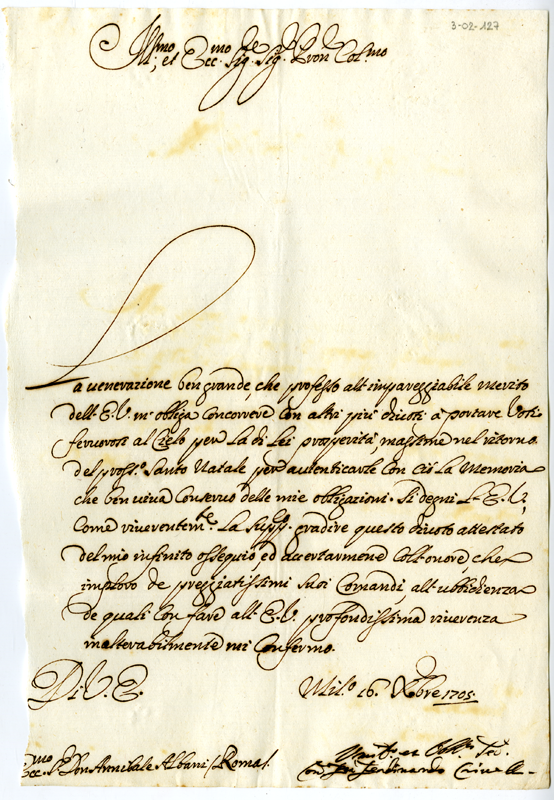 3-02-127
Ill.mo, et Ecc.mo Sig.re Sig.r Pron Col.mo
La venerazione ben grande, che professo all'impareggiabile merito
dell'E.V. m'obliga concorrere con altri più divoti à portare Voti
fervorosi al Cielo per la di Lei prosperità, massime nel ritorno
del pross.o Santo Natale per autenticarle con ciò la Memoria
che ben viva conservo delle mie obligazioni. Si degni L'E.V.,
come riverentem.te la supp.co gradire questo divoto attestato
del mio infinito ossequio, ed accertarmene coll'onore, che
imploro de preggiatissimi suoi Comandi, all'ubbidienza
de quali con fare all'E.V. profondissima riverenza
inalterabilmente mi confermo.
Di V.E.
Mil.o 16. Xbre 1705.
Ecc.mo S.r Don Annibale Albani / Roma /.
Ferdinando